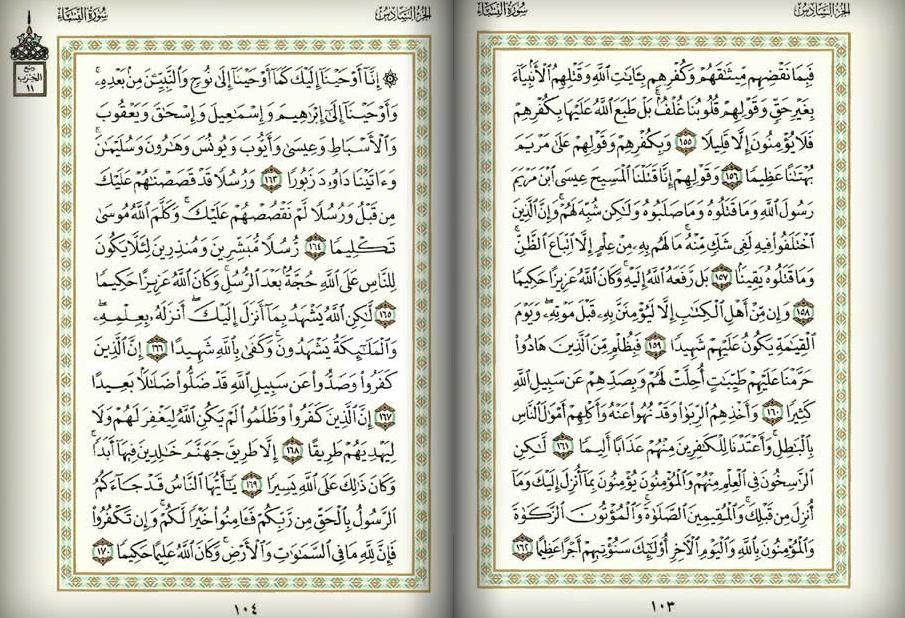 الجزء السادس
سورة النساء
فَبِمَا نَقْضِهِم مِّيثَٰقَهُمْ وَكُفْرِهِم بِـَٔايَٰتِ ٱللَّهِ وَقَتْلِهِمُ ٱلْأَنۢبِيَآءَ
بِغَيْرِ حَقٍّ وَقَوْلِهِمْ قُلُوبُنَا غُلْفٌۢ ۚ بَلْ طَبَعَ ٱللَّهُ عَلَيْهَا بِكُفْرِهِمْ
فَلَا يُؤْمِنُونَ إِلَّا قَلِيلًا ١٥٥ وَبِكُفْرِهِمْ وَقَوْلِهِمْ عَلَىٰ مَرْيَمَ
بُهْتَٰنًا عَظِيمًا ١٥٦ وَقَوْلِهِمْ إِنَّا قَتَلْنَا ٱلْمَسِيحَ عِيسَى ٱبْنَ مَرْيَمَ
رَسُولَ ٱللَّهِ وَمَا قَتَلُوهُ وَمَا صَلَبُوهُ وَلَٰكِن شُبِّهَ لَهُمْ ۚ وَإِنَّ ٱلَّذِينَ
ٱخْتَلَفُوا۟ فِيهِ لَفِى شَكٍّ مِّنْهُ ۚ مَا لَهُم بِهِۦ مِنْ عِلْمٍ إِلَّا ٱتِّبَاعَ ٱلظَّنِّ ۚ
وَمَا قَتَلُوهُ يَقِينًۢا ١٥٧ بَل رَّفَعَهُ ٱللَّهُ إِلَيْهِ ۚ وَكَانَ ٱللَّهُ عَزِيزًا حَكِيمًا
١٥٨ وَإِن مِّنْ أَهْلِ ٱلْكِتَٰبِ إِلَّا لَيُؤْمِنَنَّ بِهِۦ قَبْلَ مَوْتِهِۦ ۖ وَيَوْمَ
ٱلْقِيَٰمَةِ يَكُونُ عَلَيْهِمْ شَهِيدًا ١٥٩ فَبِظُلْمٍ مِّنَ ٱلَّذِينَ هَادُوا۟
حَرَّمْنَا عَلَيْهِمْ طَيِّبَٰتٍ أُحِلَّتْ لَهُمْ وَبِصَدِّهِمْ عَن سَبِيلِ ٱللَّهِ
كَثِيرًا ١٦٠ وَأَخْذِهِمُ ٱلرِّبَوٰا۟ وَقَدْ نُهُوا۟ عَنْهُ وَأَكْلِهِمْ أَمْوَٰلَ ٱلنَّاسِ
بِٱلْبَٰطِلِ ۚ وَأَعْتَدْنَا لِلْكَٰفِرِينَ مِنْهُمْ عَذَابًا أَلِيمًا ١٦١ لَّٰكِنِ
ٱلرَّٰسِخُونَ فِى ٱلْعِلْمِ مِنْهُمْ وَٱلْمُؤْمِنُونَ يُؤْمِنُونَ بِمَآ أُنزِلَ إِلَيْكَ وَمَآ
أُنزِلَ مِن قَبْلِكَ ۚ وَٱلْمُقِيمِينَ ٱلصَّلَوٰةَ ۚ وَٱلْمُؤْتُونَ ٱلزَّكَوٰةَ
وَٱلْمُؤْمِنُونَ بِٱللَّهِ وَٱلْيَوْمِ ٱلْـَٔاخِرِ أُو۟لَٰٓئِكَ سَنُؤْتِيهِمْ أَجْرًا عَظِيمًا ١٦٢
١٠٣
الجزء السادس
سورة النساء
ربع
الحزب
١١
۞ إِنَّآ أَوْحَيْنَآ إِلَيْكَ كَمَآ أَوْحَيْنَآ إِلَىٰ نُوحٍ وَٱلنَّبِيِّـۧنَ مِنۢ بَعْدِهِۦ ۚ
وَأَوْحَيْنَآ إِلَىٰٓ إِبْرَٰهِيمَ وَإِسْمَٰعِيلَ وَإِسْحَٰقَ وَيَعْقُوبَ
وَٱلْأَسْبَاطِ وَعِيسَىٰ وَأَيُّوبَ وَيُونُسَ وَهَٰرُونَ وَسُلَيْمَٰنَ ۚ
وَءَاتَيْنَا دَاوُۥدَ زَبُورًا ١٦٣ وَرُسُلًا قَدْ قَصَصْنَٰهُمْ عَلَيْكَ
مِن قَبْلُ وَرُسُلًا لَّمْ نَقْصُصْهُمْ عَلَيْكَ ۚ وَكَلَّمَ ٱللَّهُ مُوسَىٰ
تَكْلِيمًا ١٦٤ رُّسُلًا مُّبَشِّرِينَ وَمُنذِرِينَ لِئَلَّا يَكُونَ
لِلنَّاسِ عَلَى ٱللَّهِ حُجَّةٌۢ بَعْدَ ٱلرُّسُلِ ۚ وَكَانَ ٱللَّهُ عَزِيزًا حَكِيمًا
١٦٥ لَّٰكِنِ ٱللَّهُ يَشْهَدُ بِمَآ أَنزَلَ إِلَيْكَ ۖ أَنزَلَهُۥ بِعِلْمِهِۦ ۖ
وَٱلْمَلَٰٓئِكَةُ يَشْهَدُونَ ۚ وَكَفَىٰ بِٱللَّهِ شَهِيدًا ١٦٦ إِنَّ ٱلَّذِينَ
كَفَرُوا۟ وَصَدُّوا۟ عَن سَبِيلِ ٱللَّهِ قَدْ ضَلُّوا۟ ضَلَٰلًۢا بَعِيدًا
١٦٧ إِنَّ ٱلَّذِينَ كَفَرُوا۟ وَظَلَمُوا۟ لَمْ يَكُنِ ٱللَّهُ لِيَغْفِرَ لَهُمْ وَلَا
لِيَهْدِيَهُمْ طَرِيقًا ١٦٨ إِلَّا طَرِيقَ جَهَنَّمَ خَٰلِدِينَ فِيهَآ أَبَدًا ۚ
وَكَانَ ذَٰلِكَ عَلَى ٱللَّهِ يَسِيرًا ١٦٩ يَٰٓأَيُّهَا ٱلنَّاسُ قَدْ جَآءَكُمُ
ٱلرَّسُولُ بِٱلْحَقِّ مِن رَّبِّكُمْ فَـَٔامِنُوا۟ خَيْرًا لَّكُمْ ۚ وَإِن تَكْفُرُوا۟
فَإِنَّ لِلَّهِ مَا فِى ٱلسَّمَٰوَٰتِ وَٱلْأَرْضِ ۚ وَكَانَ ٱللَّهُ عَلِيمًا حَكِيمًا ١٧٠
١٠٤